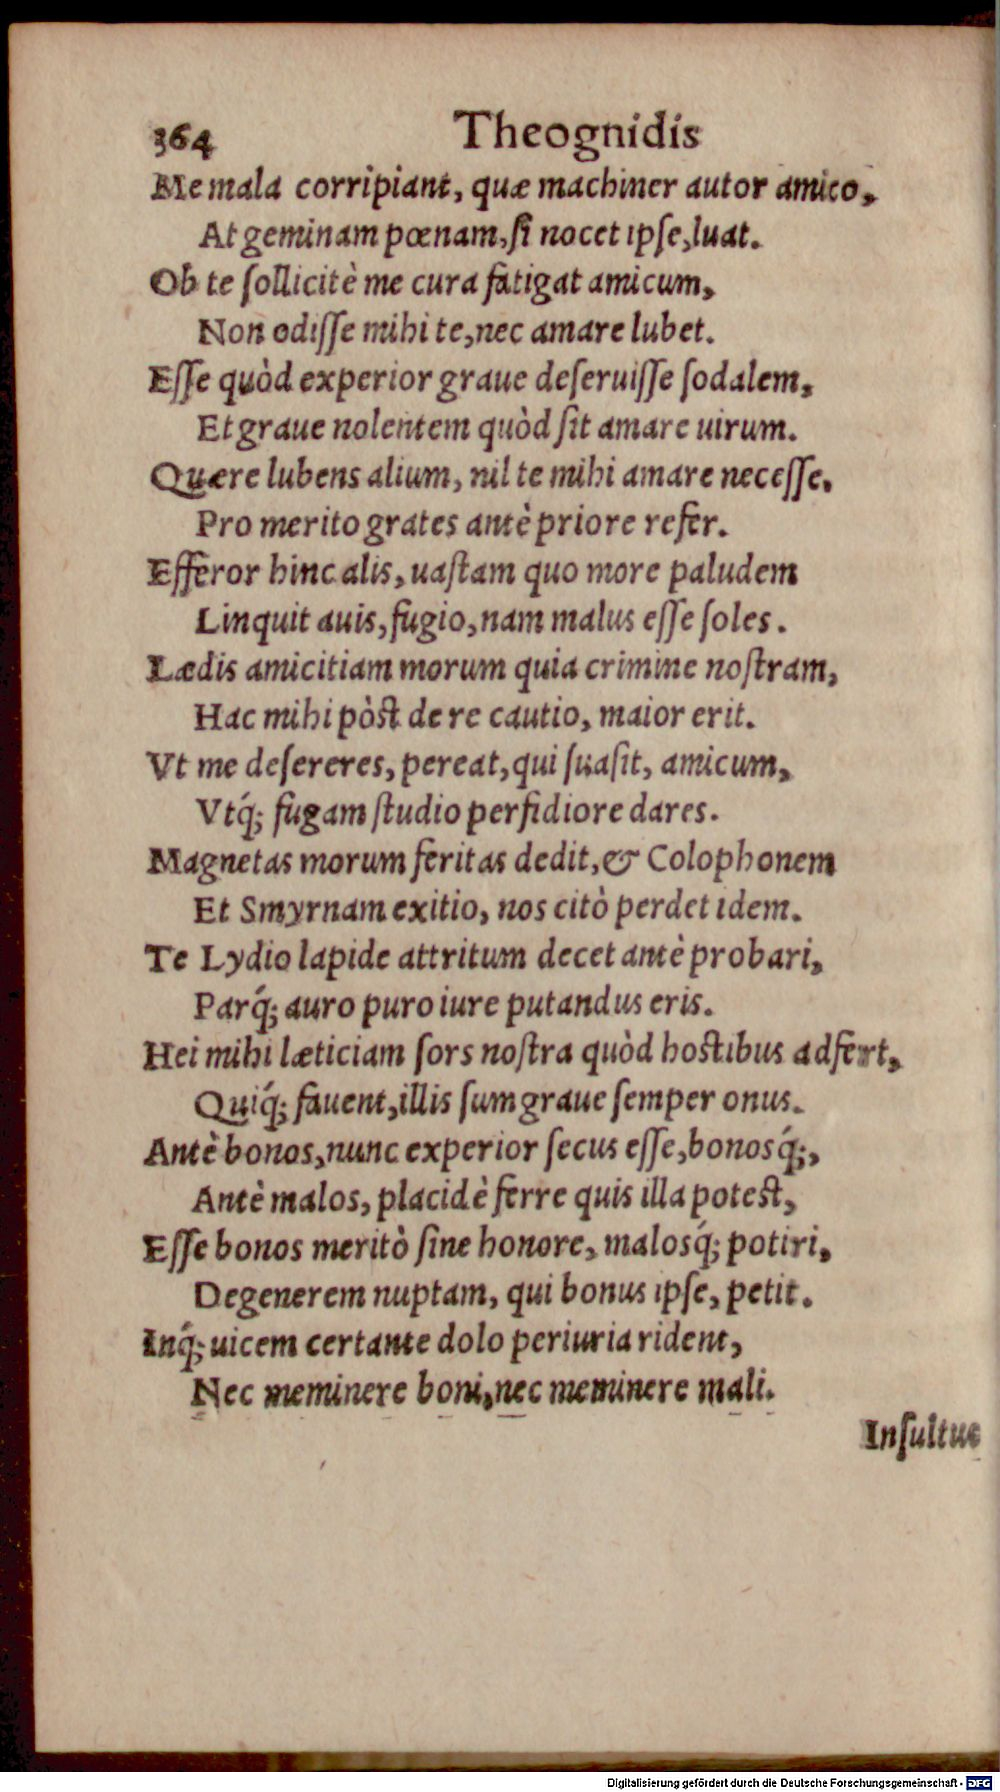 364 Theognidis
Me mala corripiant, quæ machiner autor amico,
At geminam pœnam, ſi nocet ipſe, luat.
Ob te ſollicitè me cura fatigat amicum,
Non odiſſe mihi te, nec amare lubet.
Eſſe quòd experior graue deſeruiſſe ſodalem,
Et graue nolentem quòd ſit amare uirum.
Quære lubens alium, nil te mihi amare neceſſe.
Pro merito grates antè priore refer.
Efferor hinc alis, uaſtam quo more paludem
Linquit auis, fugio, nam malus eſſe ſoles.
Lædis amicitiam morum quia crimine noſtram,
Hac mihi pòst de re cautio, maior erit.
Vt me deſereres, pereat, qui ſuaſit, amicum,
Vtq́; fugam ſtudio perfidiore dares.
Magnetas morum feritas dedit, & Colophonem
Et Smyrnam exitio, nos citò perdet idem.
Te Lydio lapide attritum decet antè probari,
Parq́; auro puro iure putandus eris.
Hei mihi læticiam ſors noſtra quòd hostibus adfert,
Quiq́; fauent, illis ſum graue ſemper onus.
Antè bonos, nunc experior ſecus eſſe, bonosq́;,
Antè malos, placidè ferre quis illa potest,
Eſſe bonos meritò ſine honore, malosq́; potiri,
Degenerem nuptam, qui bonus ipſe, petit.
Inq́; uicem certante dolo periuria rident,
Nec meminere boni, nec meminere mali.
Inſultus
Digitalisierung gefördert durch die Deutsche Forschungsgemeinschaft - DFG